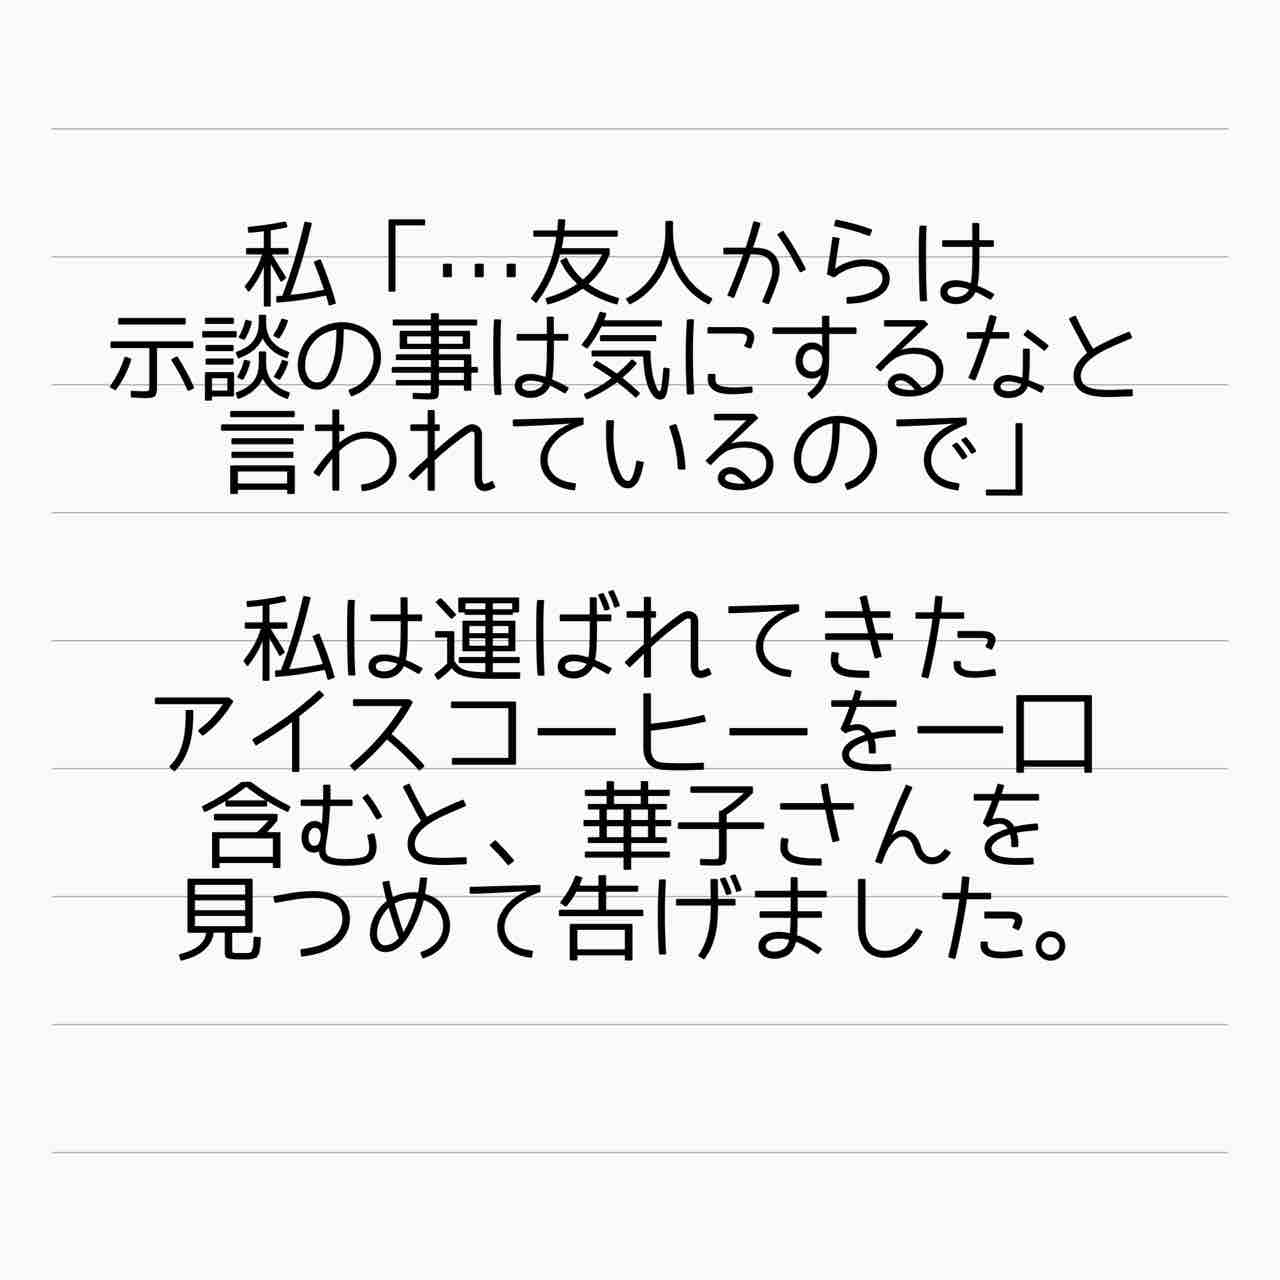 私「…友人からは
示談の事は気にするなと
言われているので」
私は運ばれてきた
アイスコーヒーを一口
含むと、華子さんを
見つめて告げました。